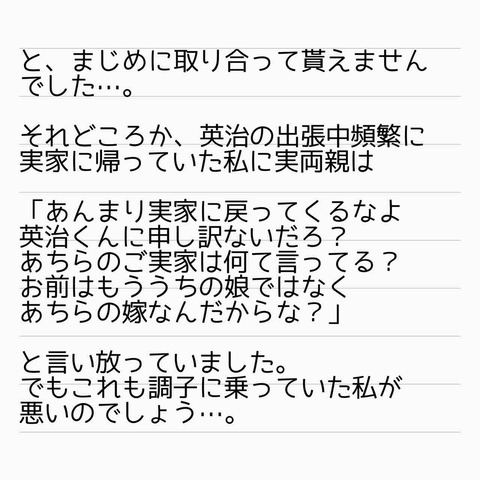 と、まじめに取り合って貰えません
でした…。
それどころか、英治の出張中頻繁に
実家に帰っていた私に実両親は
「あんまり実家に戻ってくるなよ
英治くんに申し訳ないだろ？
あちらのご実家は何て言ってる？
お前はもううちの娘ではなく
あちらの嫁なんだからな？」
と言い放っていました。
でもこれも調子に乗っていた私が
悪いのでしょう…。